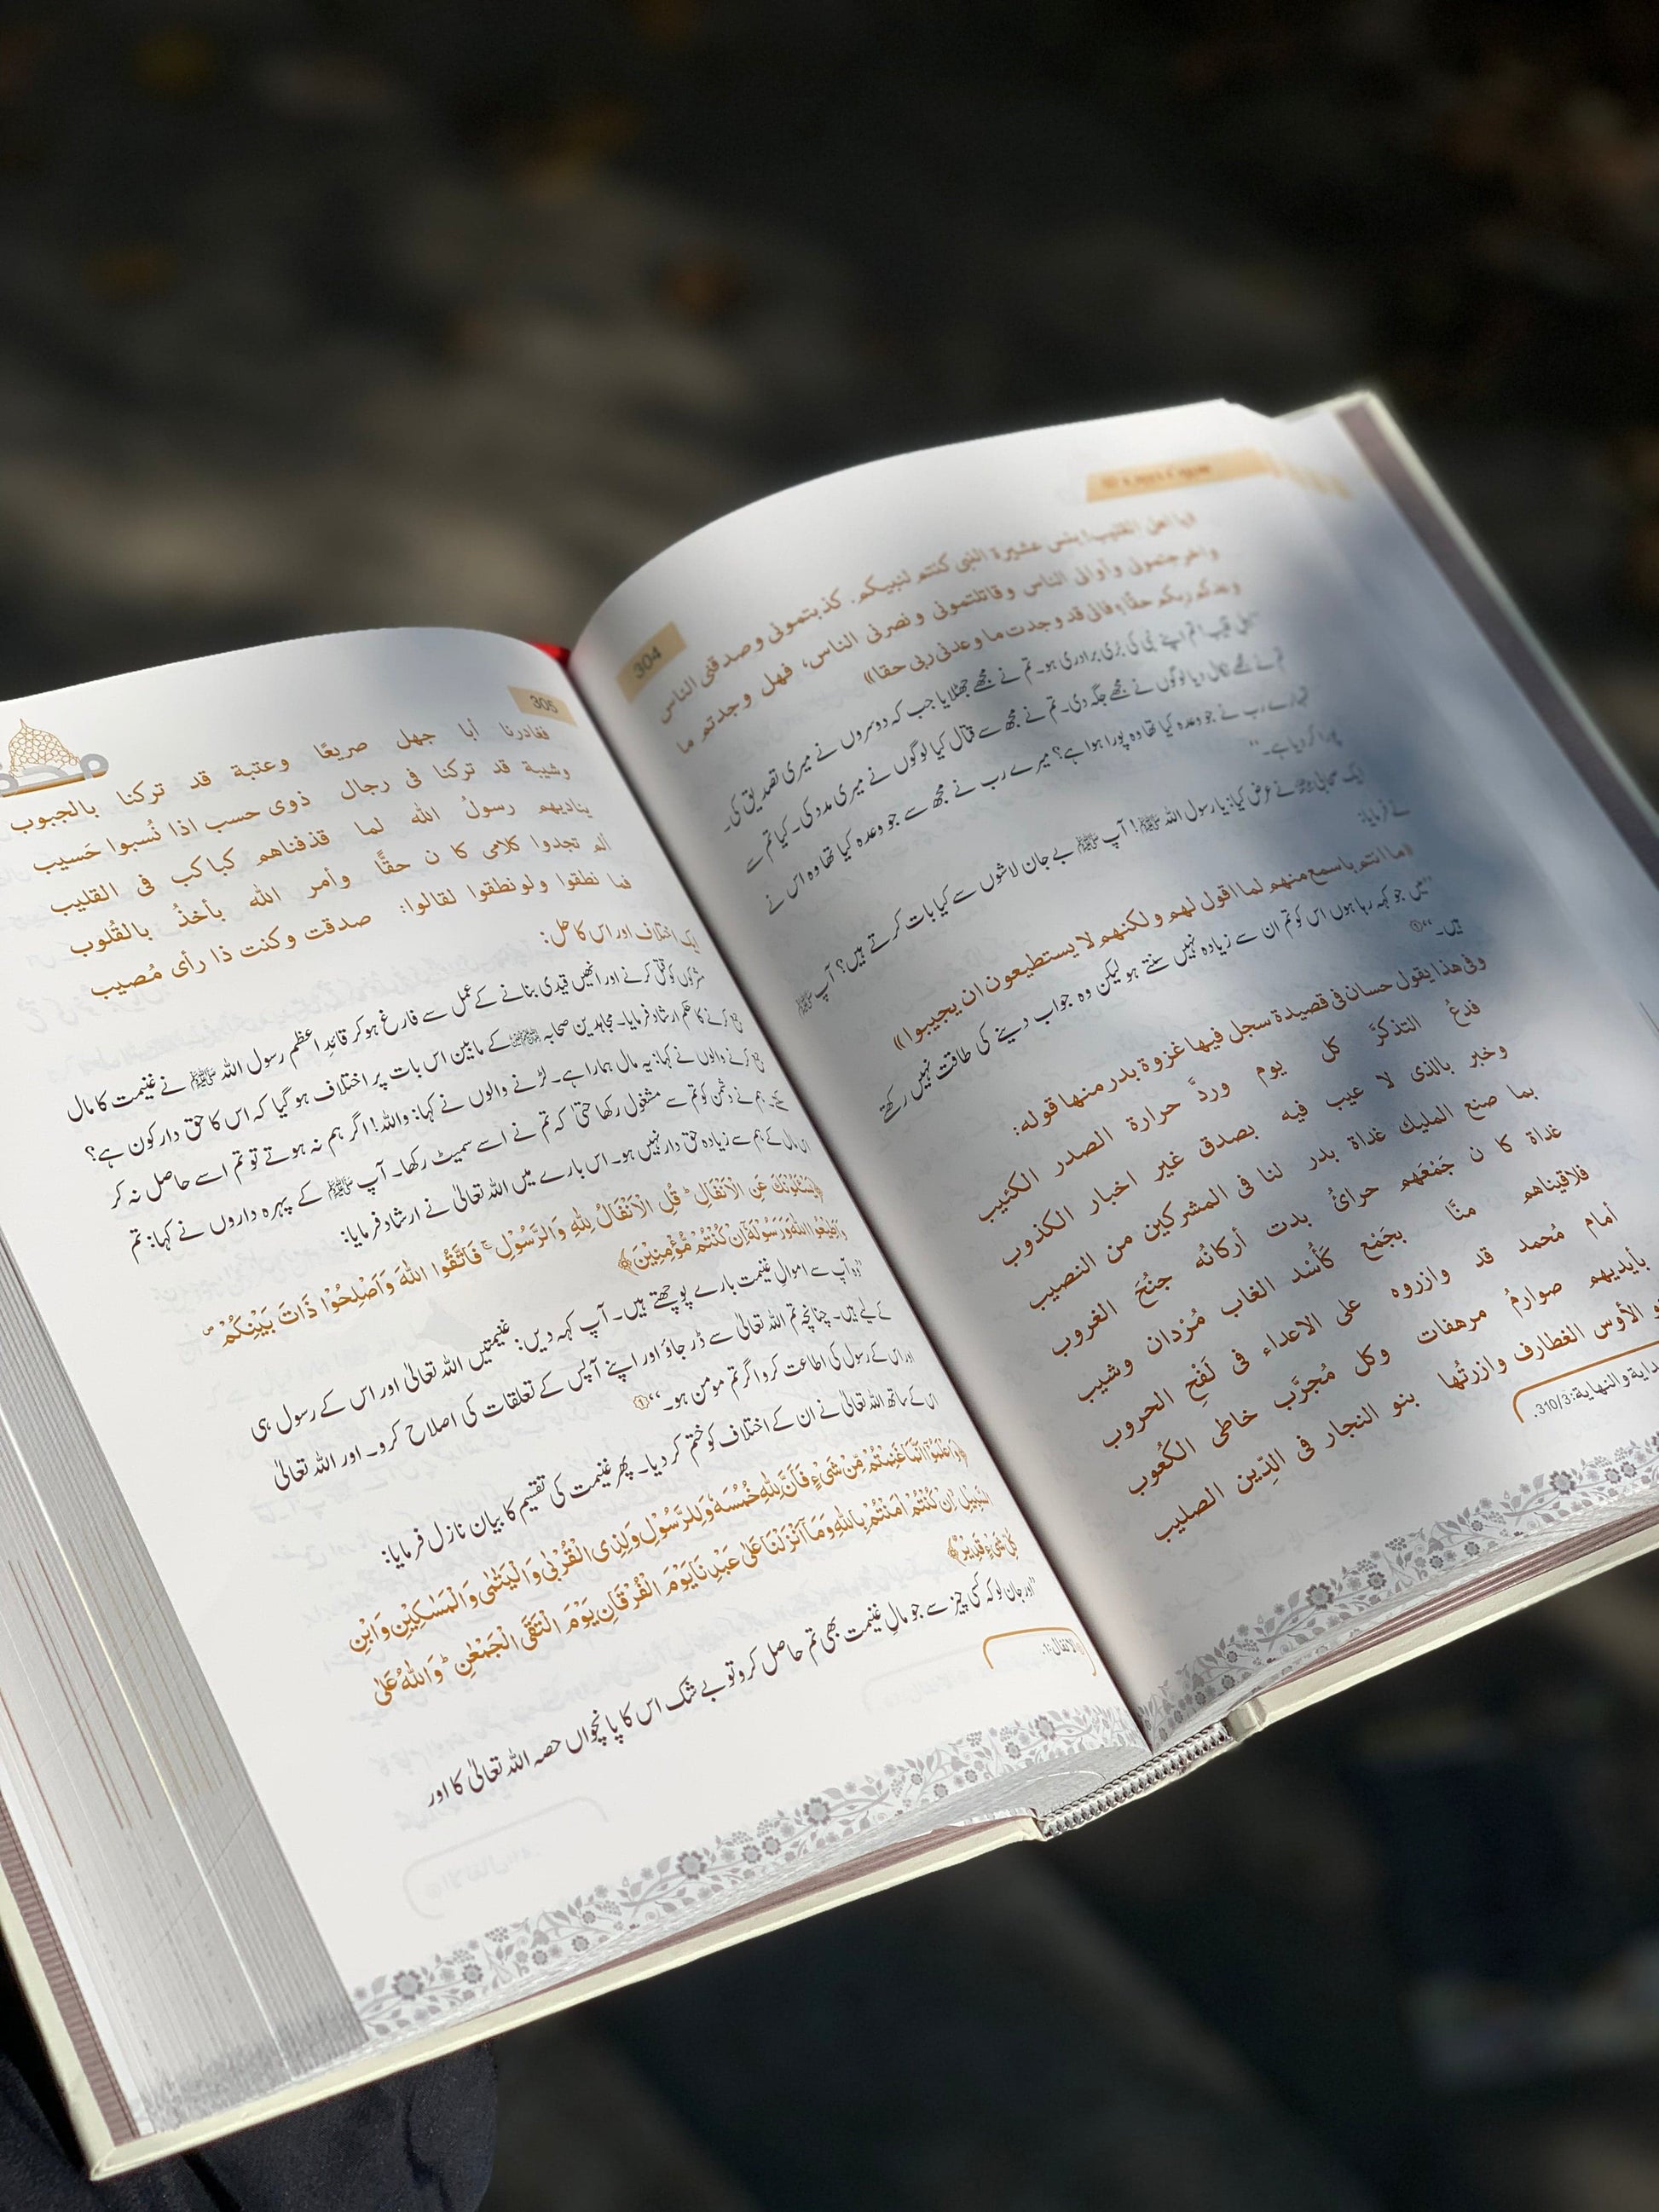 304
«یا اهل القلیب! بئس عشیرة النبی کنتم لنبیکم. کذبتمونی وصدقنی الناس
واخرجتمونی وأوانی الناس وقاتلتمونی ونصرنی الناس، فهل وجدتم ما
وعدکم ربکم حقًا؟ فانی قد وجدت ما وعدنی ربی حقا»
اپنے نبی کی بُری برادری ہو۔ تم نے مجھے جھٹلایا جب کہ دوسروں نے میری تصدیق کی۔
تم نے مجھے نکال دیا لوگوں نے مجھے جگہ دی۔ تم نے مجھ سے قتال کیا لوگوں نے میری مدد کی۔ کیا تم سے
تمہارے رب نے جو وعدہ کیا تھا وہ پورا ہوا ہے؟ میرے رب نے مجھ سے جو وعدہ کیا تھا وہ اس نے
پورا کر دیا ہے۔“
ایک صحابی نے عرض کیا: یا رسول اللہ ﷺ! آپ ﷺ بے جان لاشوں سے کیا بات کرتے ہیں؟ آپ ﷺ
نے فرمایا:
«ما انتم باسمع منهم لما اقول لهم ولکنهم لا یستطیعون ان یجیبوا»
”میں جو کہہ رہا ہوں اس کو تم ان سے زیادہ نہیں سنتے ہو لیکن وہ جواب دینے کی طاقت نہیں رکھتے
ہیں۔“①
وفی هذا یقول حسان فی قصیدة سجل فیها غزوة بدر منها قوله:
فدعْ التذکرَّ کل یوم وردَّ حرارة الصدر الکئیب
وخبر بالذی لا عیب فیه بصدق غیر اخبار الکذوب
بما صنع الملیك غداة بدر لنا فی المشرکین من النصیب
غداة کا ن جَمْعَهم حرائُ بدت أرکانُه جنُحَ الغروب
فلاقیناهم منَّا بجَمْع کَأسْد الغاب مُرْدان وشیب
أمام مُحمد قد وازروه علی الاعداء فی لَفْحِ الحروب
بأیدیهم صوارمُ مرهفات وکل مُجرَّب خاطی الکُعوب
الأوْس الغطارف وازرتْها بنو النجار فی الدِّین الصلیب
والنهایة:310/3.
305
فغادرنا أبا جهل صریعًا وعتبة قد ترکنا بالجبوب
وشیبة قد ترکنا فی رجال ذوی حسب اذا نُسبوا حَسیب
ینادیهم رسولُ الله لما قذفناهم کباکب فی القلیب
ألم تجدوا کلامی کا ن حقًّا وأمر الله یأخذُ بالقُلوب
فما نطقوا ولو نطقوا لقالوا: صدقت وکنت ذا رأی مُصیب
ایک اختلاف اور اس کا حل:
مشرکوں کو قتل کرنے اور انھیں قیدی بنانے کے عمل سے فارغ ہو کر قائدِ اعظم رسول اللہ ﷺ نے غنیمت کا مال
جمع کرنے کا حکم ارشاد فرمایا۔ مجاہدین صحابہ کے مابین اس بات پر اختلاف ہو گیا کہ اس کا حق دار کون ہے؟
جمع کرنے والوں نے کہا: یہ مال ہمارا ہے۔ لڑنے والوں نے کہا: واللہ! اگر ہم نہ ہوتے تو تم اسے حاصل نہ کر
ہم نے دشمن کو تم سے مشغول رکھا حتیٰ کہ تم نے اسے سمیٹ رکھا۔ آپ ﷺ کے پہرہ داروں نے کہا: تم
اس مال کے ہم سے زیادہ حق دار نہیں ہو۔ اس بارے میں اللہ تعالیٰ نے ارشاد فرمایا:
﴿یَسْـَٔلُوْنَكَ عَنِ الْاَنْفَالِ ؕ قُلِ الْاَنْفَالُ لِلّٰهِ وَالرَّسُوْلِ ۚ فَاتَّقُوا اللّٰهَ وَاَصْلِحُوْا ذَاتَ بَیْنِكُمْ ۪
وَاَطِیْعُوا اللّٰهَ وَرَسُوْلَهٗۤ اِنْ كُنْتُمْ مُّؤْمِنِیْنَ﴾
”وہ آپ سے اموالِ غنیمت بارے پوچھتے ہیں۔ آپ کہہ دیں: غنیمتیں اللہ تعالیٰ اور اس کے رسول ہی
کے لیے ہیں۔ چنانچہ تم اللہ تعالیٰ سے ڈر جاؤ اور اپنے آپس کے تعلقات کی اصلاح کرو۔ اور اللہ تعالیٰ
اور اس کے رسول کی اطاعت کرو اگر تم مومن ہو۔“①
اس کے ساتھ اللہ تعالیٰ نے ان کے اختلاف کو ختم کر دیا۔ پھر غنیمت کی تقسیم کا بیان نازل فرمایا:
﴿وَاعْلَمُوْۤا اَنَّمَا غَنِمْتُمْ مِّنْ شَیْءٍ فَاَنَّ لِلّٰهِ خُمُسَهٗ وَلِلرَّسُوْلِ وَلِذِی الْقُرْبٰی وَالْیَتٰمٰی وَالْمَسٰكِیْنِ وَابْنِ
السَّبِیْلِ اِنْ كُنْتُمْ اٰمَنْتُمْ بِاللّٰهِ وَمَاۤ اَنْزَلْنَا عَلٰی عَبْدِنَا یَوْمَ الْفُرْقَانِ یَوْمَ الْتَقَی الْجَمْعٰنِ ؕ وَاللّٰهُ عَلٰی
كُلِّ شَیْءٍ قَدِیْرٌ﴾
”اور جان لو کہ کسی چیز سے جو مالِ غنیمت بھی تم حاصل کرو تو بے شک اس کا پانچواں حصہ اللہ تعالیٰ کا اور
الانفال:1.